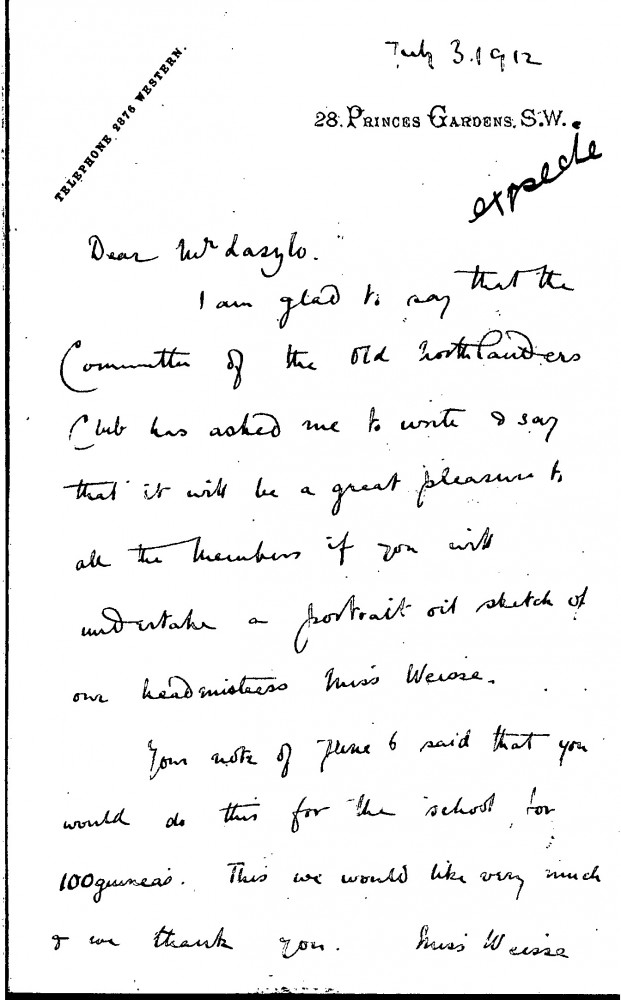 TELEPHONE 2876 WESTERN.
July 3. 1912
28. PRINCES GARDENS, S.W.
expedie
Dear Mr Laszlo.
I am glad to say that the
Committee of the Old Northlanders
Club has asked me to write & say
that it will be a great pleasure to
all the Members if you will
undertake a portrait oil sketch of
our headmistress Miss Weisse.
Your note of June 6 said that you
would do this for the school for
100 guineas. This we would like very much
& we thank you. Miss Weisse